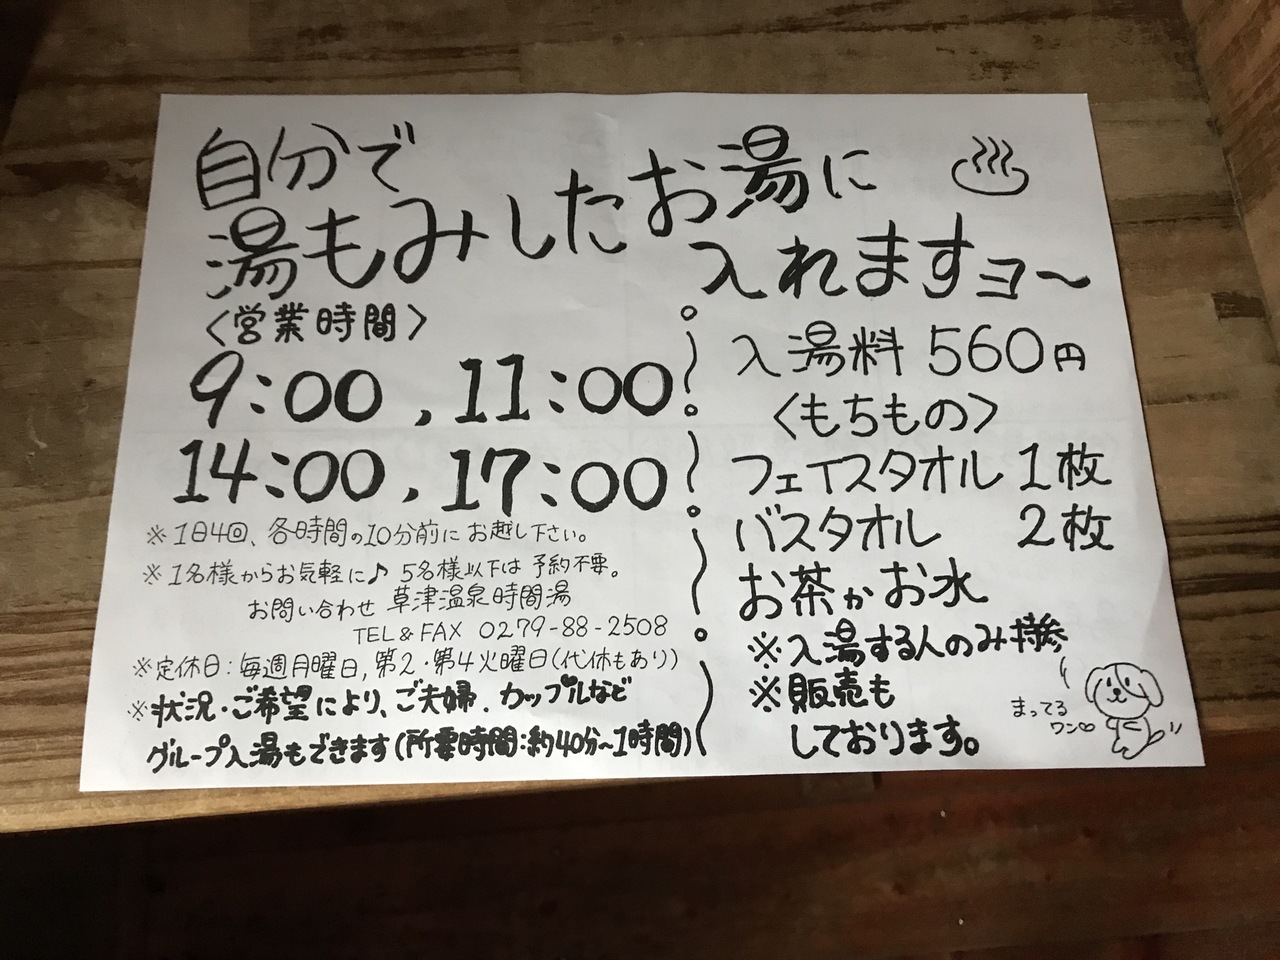 自分で
湯もみしたお湯に
入れますヨ〜
〈営業時間〉
9:00 , 11:00
14:00 , 17:00
※1日4回、各時間の10分前にお越し下さい。
※1名様からお気軽に♪ 5名様以下は予約不要。
お問い合わせ 草津温泉時間湯
TEL&FAX 0279-88-2508
※定休日:毎週月曜日,第2・第4火曜日(代休もあり)
※状況・ご希望により、ご夫婦、カップルなど
グループ入湯もできます(所要時間:約40分〜1時間)
入湯料 560円
〈もちもの〉
フェイスタオル 1枚
バスタオル 2枚
お茶かお水
※入湯する人のみ持参
※販売も
しております。
まってる
ワン♡